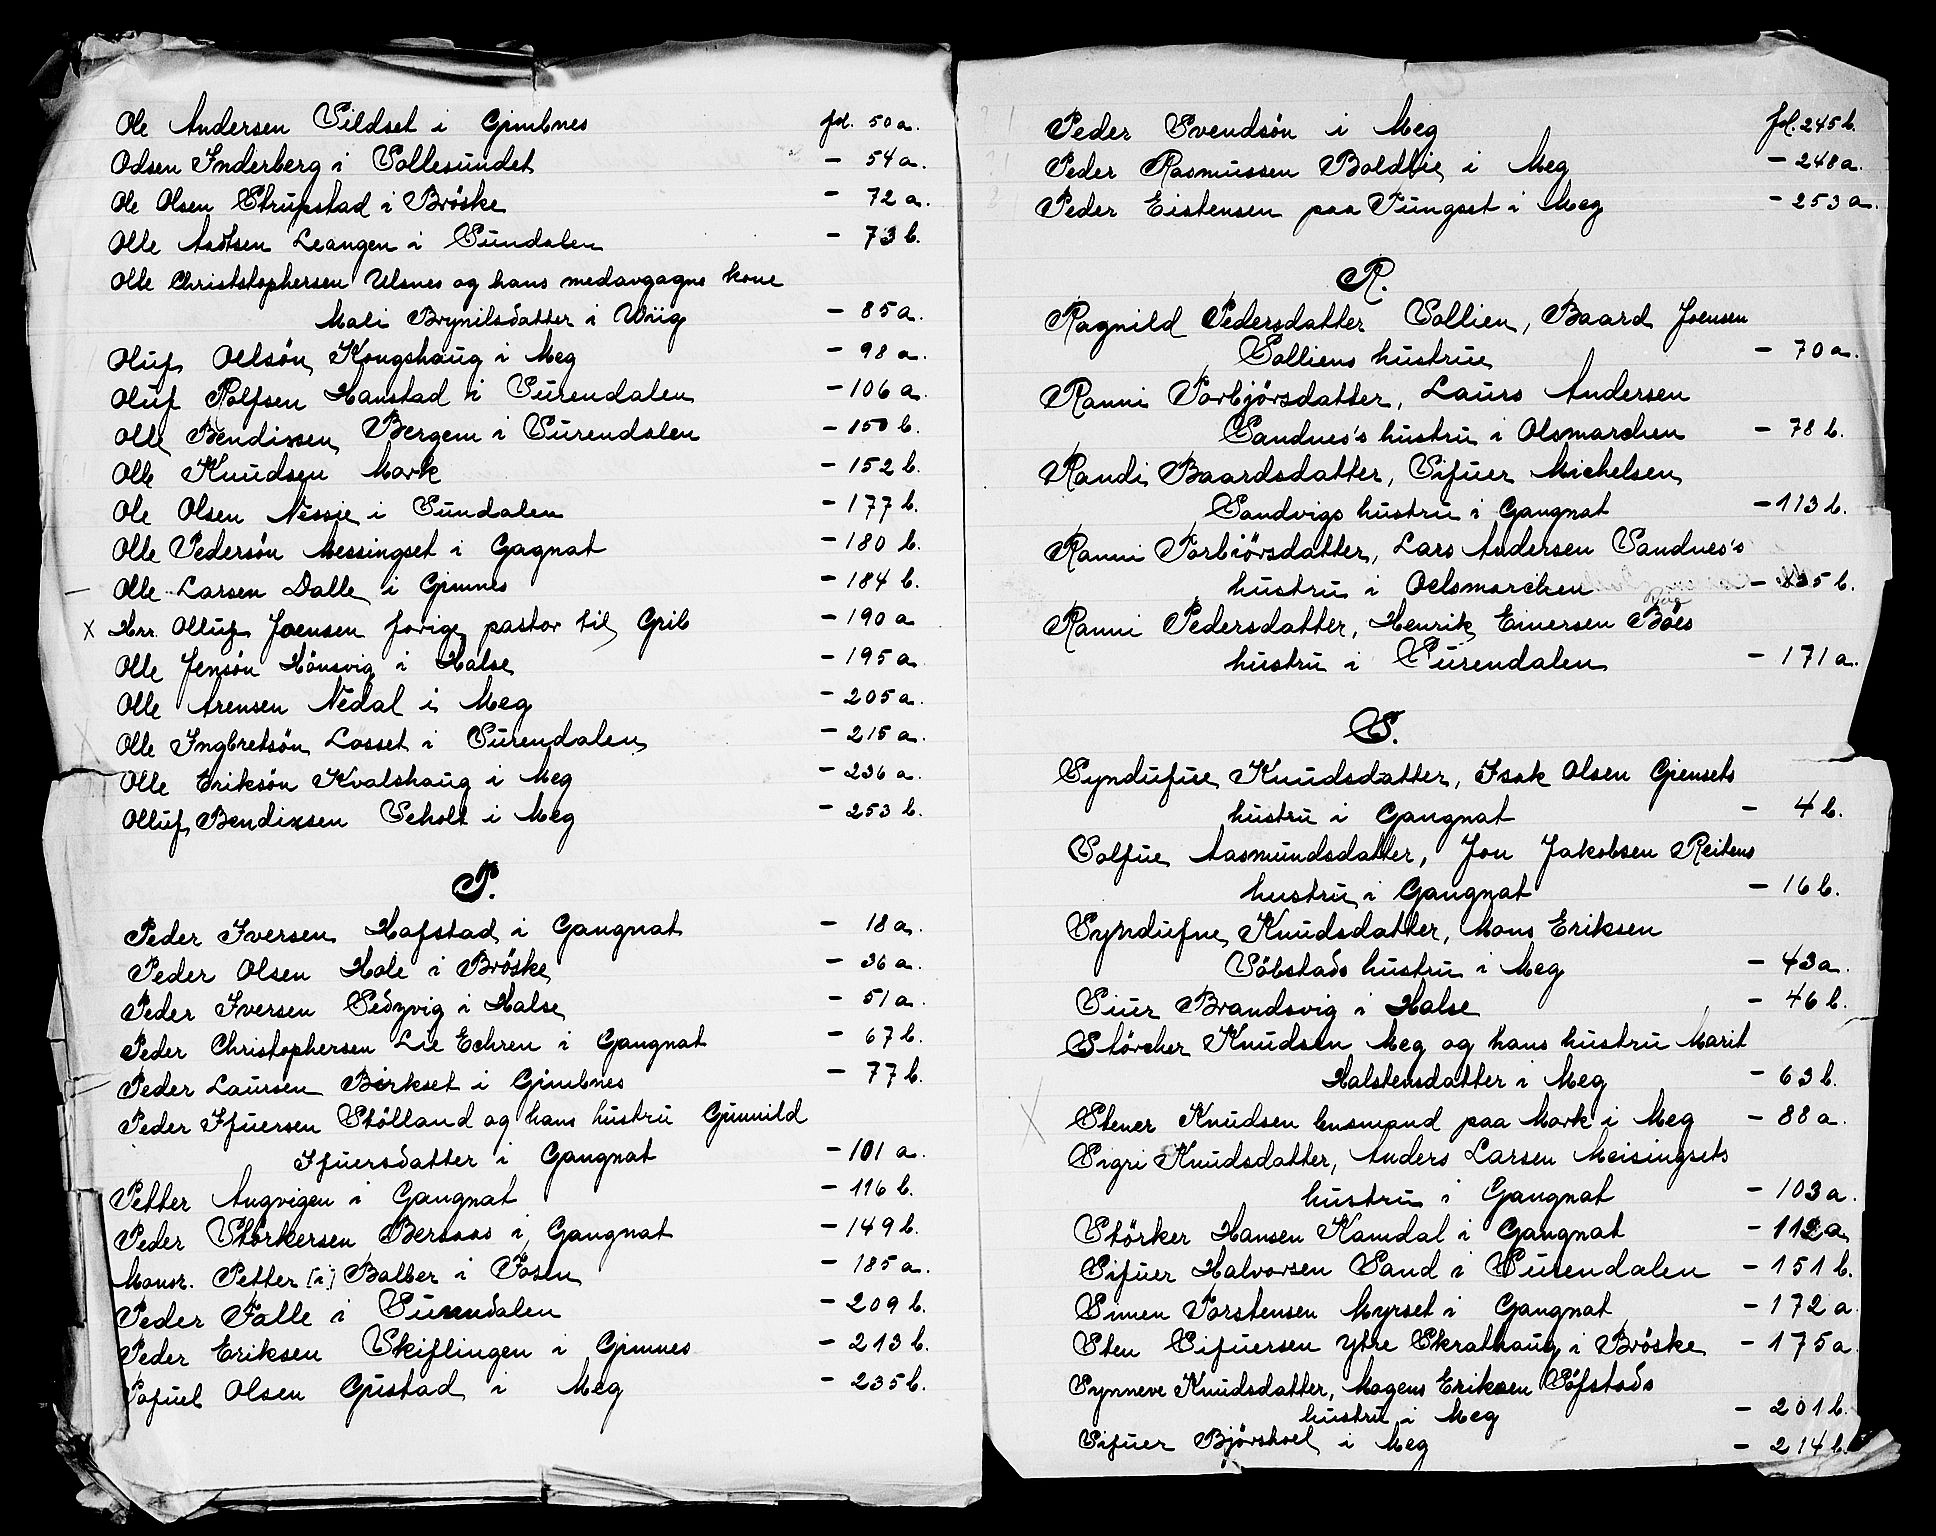 Ole Andersen Sildset i Gimbnes fol. 50 a.
Odsen Inderberg i Sollesundet - 54 a.
Ole Olsen Strupstad i Bröske - 72 a.
Olle Aadtsen Leangen i Sundalen - 73 b.
Olle Christstophersen Ulsnes og hans medavgagne kone
Mali Brynilsdatter i Wiig - 85 a.
Oluf Oelsön Kongshaug i Meg - 98 a.
Oluf Rolfsen Hanstad i Surendalen - 106 a.
Olle Bendixsen Bergem i Surendalen - 150 b.
Olle Knudsen Mork - 152 b.
Ole Olsen Nessie i Sundalen - 177 b.
Olle Pedersön Messingset i Gagnat - 180 b.
Olle Larsen Dalle i Gimnes - 184 b.
x Hrr. Olluf Joensen forige pastor til Grib - 190 a
Olle Jensön Hönsvig i Halse - 195 a
Olle Arensen Nedal i Meg - 205 a.
Olle Ingbretsön Lasset i Surendalen - 215 a.
Olle Eriksön Kvalshaug i Meg - 236 a.
Olluf Bendixsen Seholt i Meg - 253 b.
P.
Peder Iversen Hafstad i Gangnat - 18 a.
Peder Olsen Hole i Bröske - 36 a.
Peder Iversen Sedzvig i Halse - 51 a.
Peder Christophersen Lie Echren i Gangnat - 67 b.
Peder Laursen Birkset i Gimbnes - 77 b.
Peder Ifuersen Stölland og hans hustru Gunnild
Ifuersdatter i Gangnat - 101 a.
Petter Angvigen i Gangnat - 116 b.
Peder Störkersen Bersaas i Gangnat - 149 b.
Monsr. Petter [i] Balber i Fosen - 185 a.
Peder Falle i Surendalen - 209 b.
Peder Eriksen Skiflingen i Gimnes - 213 b.
Pofuel Olsen Gustad i Meg - 235 b.
Peder Svendsön i Meg fol. 245 b.
Peder Rasmussen Boldlie i Meg - 248 a.
Peder Eistensen paa Fungset i Meg - 253 a.
R.
Ragnild Pedersdatter Sollien, Baard Joensen
Solliens hustrue - 70 a.
Ranni Torbjörsdatter, Laurs Andersen
Sandnes's hustru i Olsmarchen - 78 b.
Randi Baardsdatter, Sifuer Michelsen
Sandvigs hustru i Gangnat - 113 b.
Ranni Torbiörsdatter, Lars Andersen Sandnes's
hustru i Oelsmarchen - 135 b.
Ranni Pedersdatter, Henrik Einersen Böes
hustru i Surendalen - 171 a.
S.
Syndufue Knudsdatter, Isak Olsen Giensets
hustru i Gangnat - 4 b.
Solfue Aasmundsdatter, Jon Jakobsen Reitens
hustru i Gangnat - 16 b.
Syndufne Knudsdatter, Mons Eriksen
Söbstads hustru i Meg - 43 a.
Siuer Brandsvig i Halse - 46 b.
Störcher Knudsen Meg og hans hustru Marit
Halstensdatter i Meg - 63 b.
x Stener Knudsen lensmand paa Mork i Meg - 88 a.
Sigri Knudsdatter, Anders Larsen Meisingsets
hustru i Gangnat - 103 a.
Störker Hansen Kamdal i Gangnat - 112 a
Sifuer Halvorsen Sand i Surendalen - 151 b.
Simen Torstensen Myrset i Gangnat - 172 a
Sten Sifuersen Ytre Skrathaug i Bröske - 175 a
Synneve Knudsdatter, Mogens Eriksen Söfstads
hustru i Meg - 201 b.
Sifuer Björshoel i Meg - 214 b.